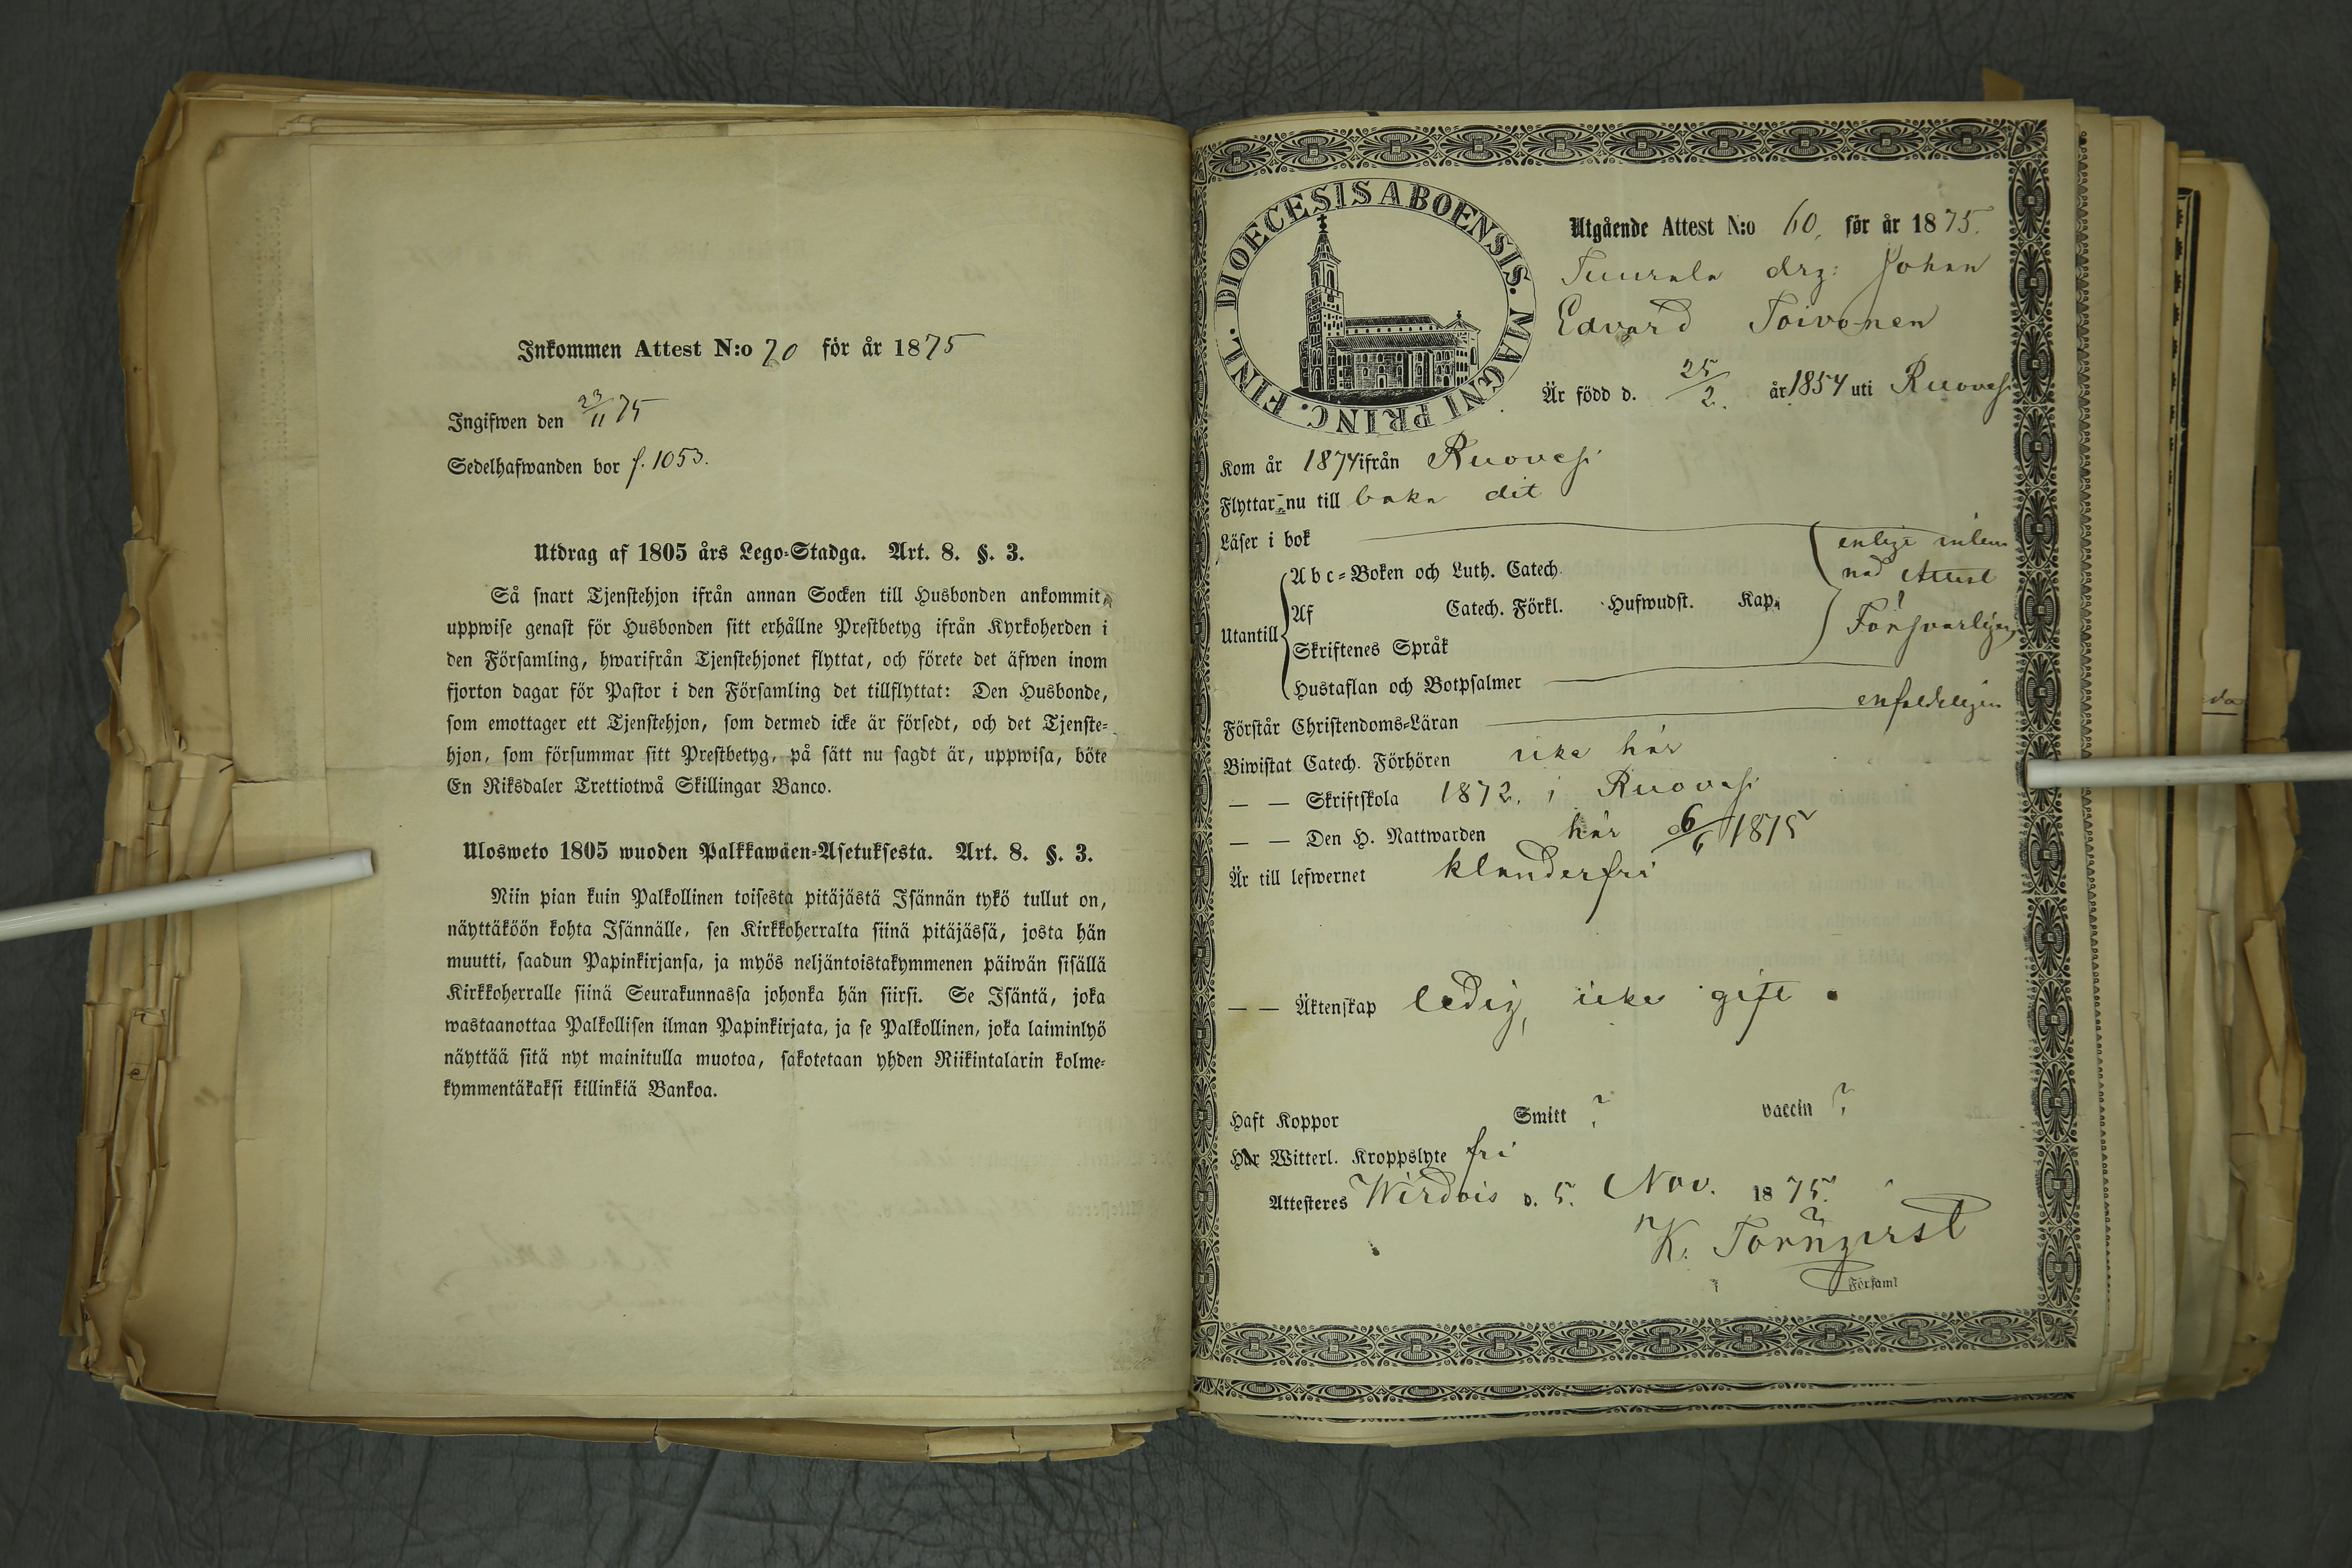 Inkommen Attest N:o 70 för år 1875
Ingifwen den 23/11 75
Sedelhafwanden bor f. 1053.
Utdrag af 1805 års Lego-Stadga. Art. 8. §. 3.
Så snart Tjenstehjon ifrån annan Socken till Husbonden ankommit,
uppwise genast för Husbonden sitt erhållne Prestbetyg ifrån Kyrkoherden i
den Församling, hwarifrån Tjenstehjonet flyttat, och förete det äfwen inom
fjorton dagar för Pastor i den Församling det tillflyttat: Den Husbonde,
som emottager ett Tjenstehjon, som dermed icke är försedt, och det Tjenste-
hjon, som försummar sitt Prestbetyg, på sätt nu sagdt är, uppwisa, böte
En Riksdaler Trettiotwå Skillingar Banco.
Ulosweto 1805 wuoden Palkkawäen-Asetuksesta. Art. 8. §. 3.
Niin pian kuin Palkollinen toisesta pitäjästä Isännän tykö tullut on,
näyttäköön kohta Isännälle, sen Kirkkoherralta siinä pitäjässä, josta hän
muutti, saadun Papinkirjansa, ja myös neljäntoistakymmenen päiwän sisällä
Kirkkoherralle siinä Seurakunnassa johonka hän siirsi. Se Isäntä, joka
wastaanottaa Palkollisen ilman Papinkirjata, ja se Palkollinen, joka laiminlyö
näyttää sitä nyt mainitulla muotoa, sakotetaan yhden Riikintalarin kolme-
kymmentäkaksi killinkiä Bankoa.
DIOECESIS ABOENSIS. MAGNI PRINC. FINL.
Utgående Attest N:o 60, för år 1875.
drg: Johan
Edvard Toivonen
Är född d. 25/2. år 1854 uti Ruovesi
Kom år 1874 ifrån Ruovesi
Flyttar nu till baka dit
Läser i bok enligt inlem
nad Attest
Utantill
Abc-Boken och Luth. Catech.
Af Catech. Förkl. Hufwudst. Kap.
Försvarligen
Skriftenes Språk
Hustaflan och Botpsalmer
Förstår Christendoms-Läran enfaldeligen
Biwistat Catech. Förhören icke här
— — Skriftskola 1872. i Ruovesi
— — Den H. Nattwarden här 6/6 1875
Är till lefwernet klanderfri
— — Äktenskap ledig, icke gift.
Haft Koppor Smitt ? vaccin ?
Har Witterl. Kroppslyte fri
Attesteres Wirdois d. 5. Nov. 1875.
K. Törnqvist
Församl